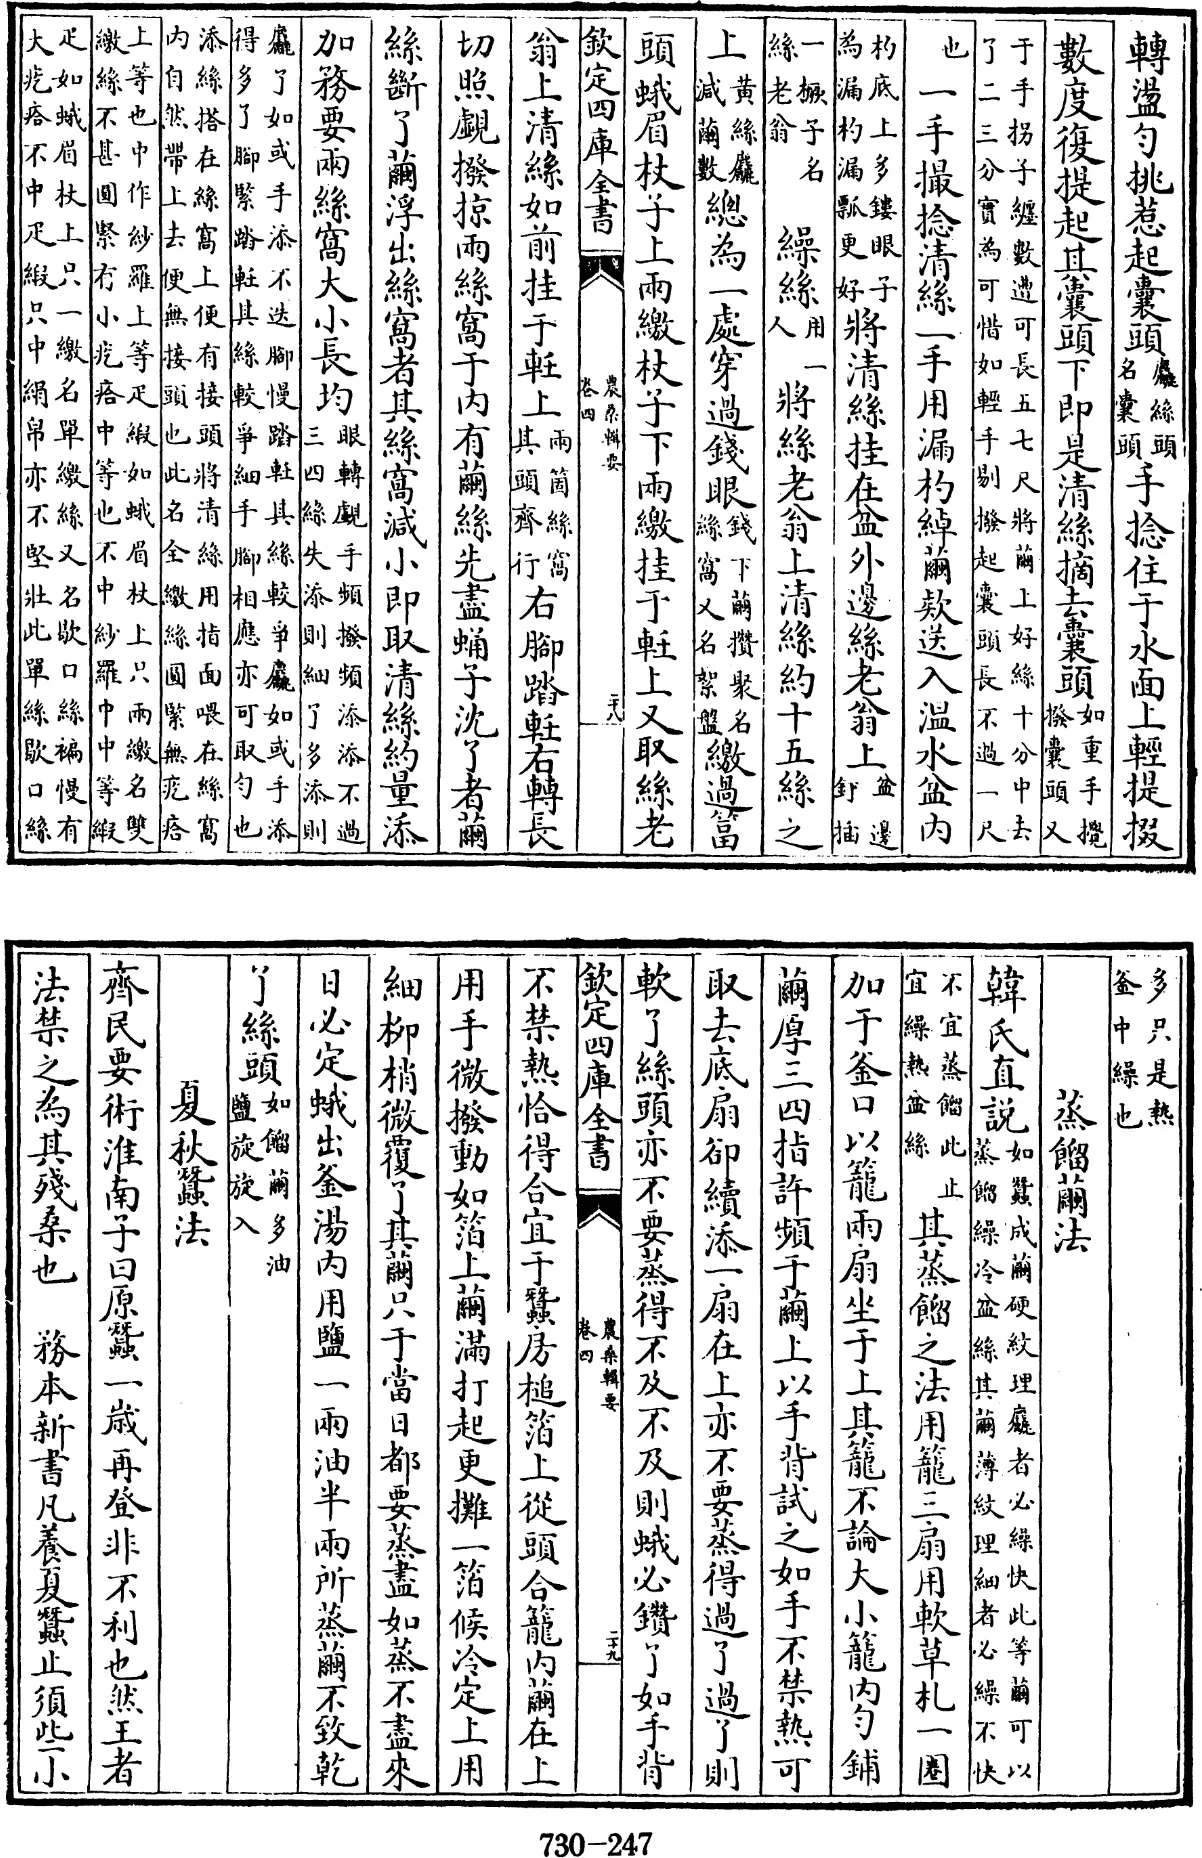 轉盪勺挑惹起囊頭麤絲頭名囊頭手捻住于水面上輕提掇
數度復提起其囊頭下即是清絲摘去囊頭如重手攪撥囊頭又
于手拐子纏數遭可長五七尺將繭上好絲十分中去
了二三分實為可惜如輕手剔撥起囊頭長不過一尺
也 一手撮捻清絲一手用漏杓綽繭欵送入溫水盆内
杓底上多鏤眼子為漏杓漏瓢更好將清絲挂在盆外邊絲老翁上盆邊釘插
一橛子名絲老翁 繰絲用一人 將絲老翁上清絲約十五絲之
上黃絲麤減繭數總為一處穿過錢眼錢下繭攢聚名絲窩又名絮盤繳過篅
頭蛾眉杖子上兩繳杖子下兩繳挂于軖上又取絲老
欽定四庫全書 農桑輯要 卷四 二十八
翁上清絲如前挂于軖上兩箇絲窩其頭齊行右腳踏軖右轉長
切照覷撥掠兩絲窩于内有繭絲先盡蛹子沈了者繭
絲斷了繭浮出絲窩者其絲窩減小即取清絲約量添
加務要兩絲窩大小長均眼轉覷手頻撥頻添添不過三四絲失添則細了多添則
麤了如或手添不迭腳慢踏軖其絲較爭麤如或手添
得多了腳緊踏軖其絲較爭細手腳相應亦可取勻也
添絲搭在絲窩上便有接頭將清絲用指面喂在絲窩
内自然帶上去便無接頭也此名全繳絲圓緊無疙瘩
上等也中作紗羅上等疋緞如蛾眉杖上只兩繳名雙
繳絲不甚圓緊有小疙瘩中等也不中紗羅中中等緞
疋如蛾眉杖上只一繳名單繳絲又名歇口絲褊慢有
大疙瘩不中疋緞只中絹帛亦不堅壯此單絲歇口絲
多只是熱
釜中繰也
蒸餾繭法
韓氏直説如蠶成繭硬紋理麤者必繰快此等繭可以蒸餾繰冷盆絲其繭薄紋理細者必繰不快
不宜蒸餾此止宜繰熱盆絲 其蒸餾之法用籠三扇用軟草札一圈
加于釜口以籠兩扇坐于上其籠不論大小籠内勻鋪
繭厚三四指許頻于繭上以手背試之如手不禁熱可
取去底扇卻續添一扇在上亦不要蒸得過了過了則
軟了絲頭亦不要蒸得不及不及則蛾必鑽了如手背
欽定四庫全書 農桑輯要 卷四 二十九
不禁熱恰得合宜于蠶房槌箔上從頭合籠内繭在上
用手微撥動如箔上繭滿打起更攤一箔候冷定上用
細柳梢微覆了其繭只于當日都要蒸盡如蒸不盡來
日必定蛾出釜湯内用鹽一兩油半兩所蒸繭不致乾
了絲頭如餾繭多油鹽旋旋入
夏秋蠶法
齊民要術淮南子曰原蠶一歳再登非不利也然王者
法禁之為其殘桑也 務本新書凡養夏蠶止須些小
730-247